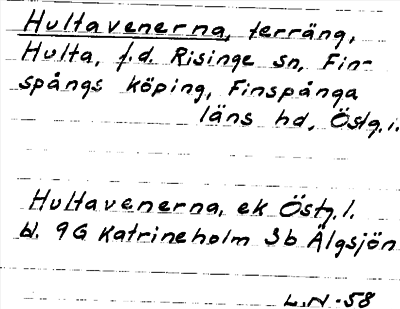 Hultavenerna, terräng,
Hulta, f.d. Risinge sn, Fin-
spångs köping, Finspånga
läns hd, Östg.l.
Hultavenerna, ek Östg.l.
bl. 9G Katrineholm 3b Älgsjön
L.N.-58